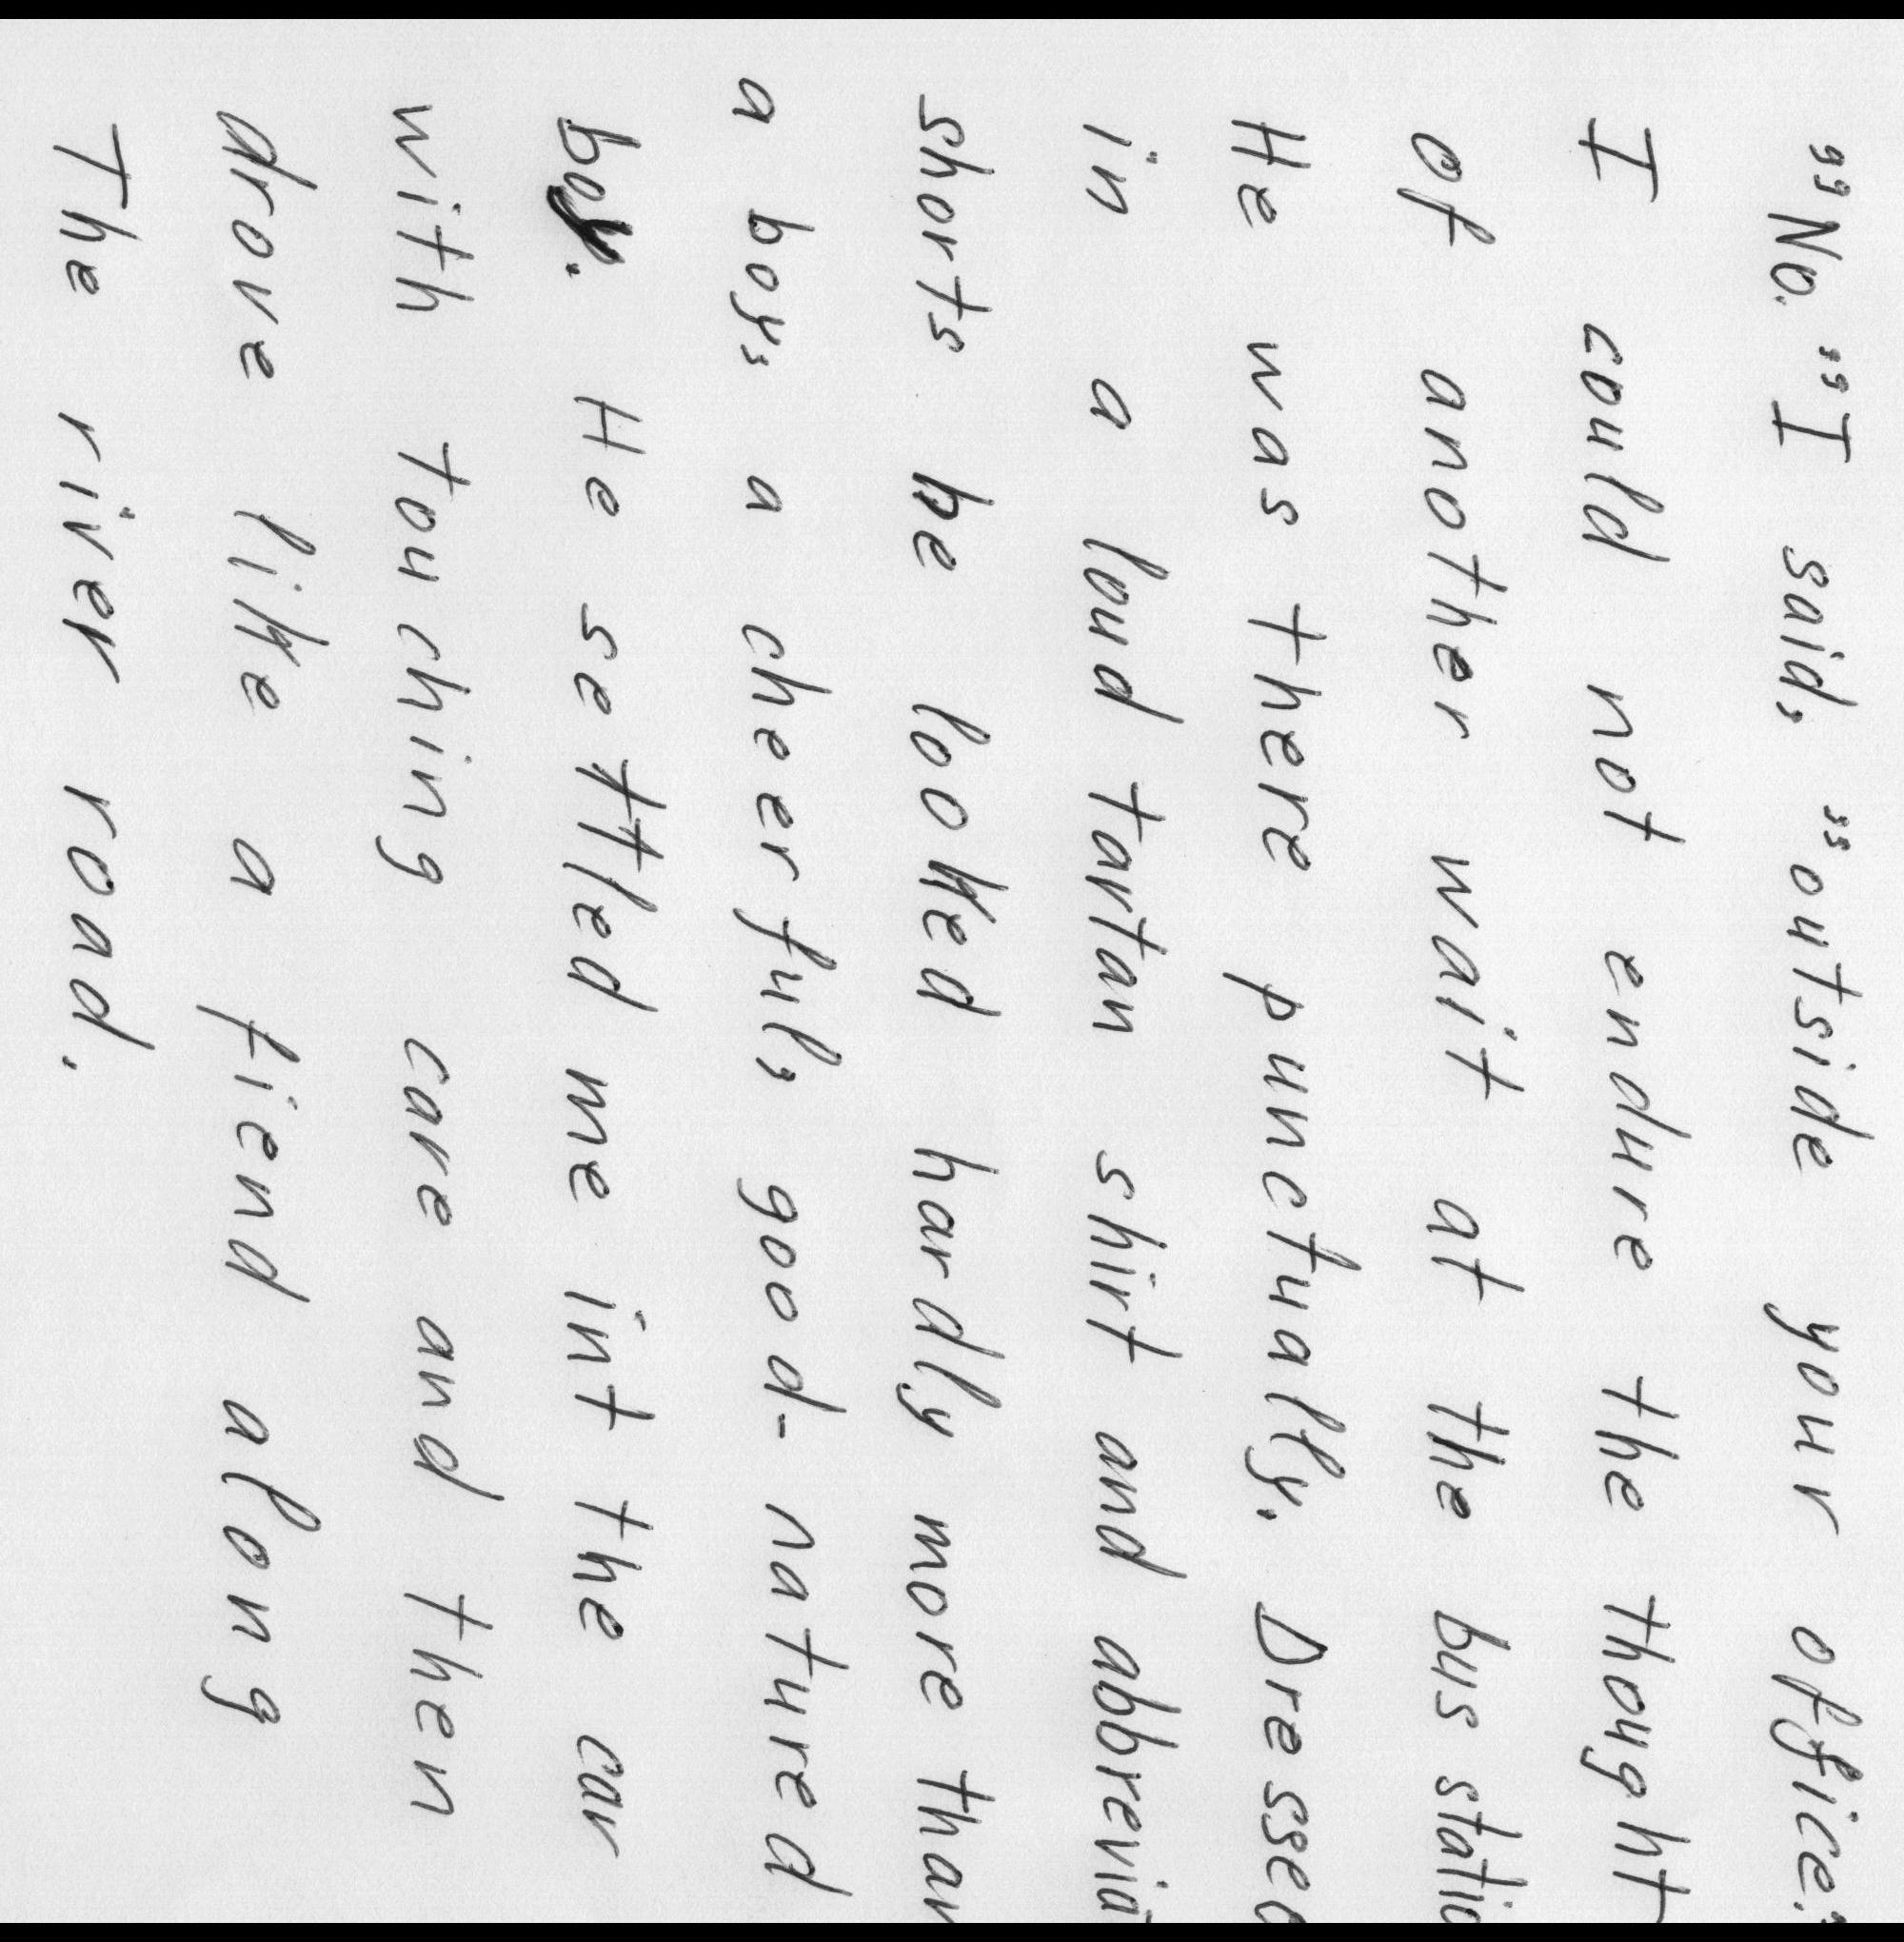 "No." "I said, "outside your office."
I could not endure the thought
of another wait at the bus statio
He was there punctually. Dressed
in a loud tartan shirt and abbrevia
shorts he looked hardly more than
a boy, a cheerful, good-natured
boy. He settled me int the car
with touching care and then
drove like a fiend along
The river road.